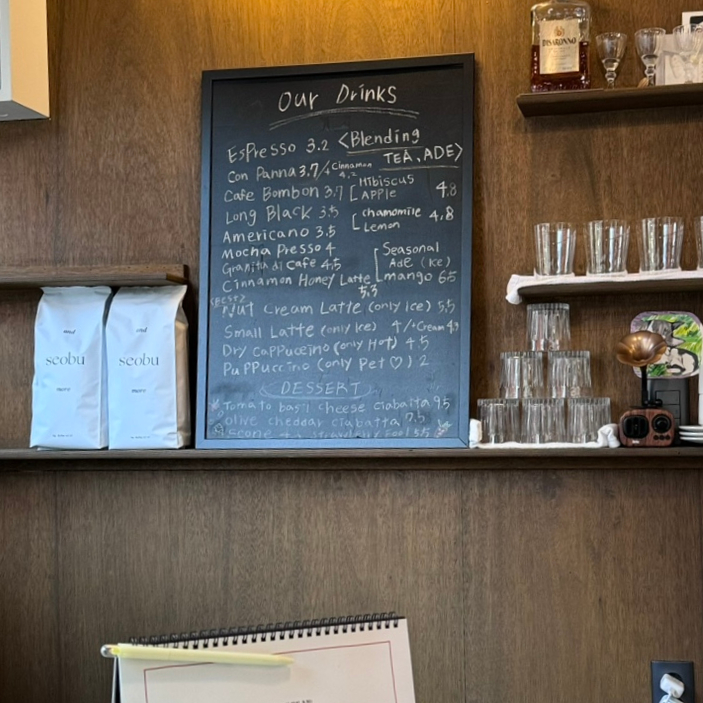 Our Drinks
Espresso 3.2
Con Panna 3.7/+Cinnamon 4.2
Cafe Bombon 3.7
Long Black 3.5
Americano 3.5
Mocha Presso 4
Granita di Cafe 4.5
Cinnamon Honey Latte 5.3
<BEST>
Nut Cream Latte (only Ice) 5.5
Small Latte (only Ice) 4/+Cream 4.9
Dry Cappuccino (only Hot) 4.5
Puppuccino (only Pet ♡) 2
<Blending
TEA, ADE>
Hibiscus
Apple 4.8
chamomile
Lemon 4.8
Seasonal
Ade (Ice)
mango 6.5
DESSERT
Tomato basil cheese ciabatta 9.5
olive cheddar ciabatta 7.5
Scone
5.5
seobu
seobu
DISARONNO